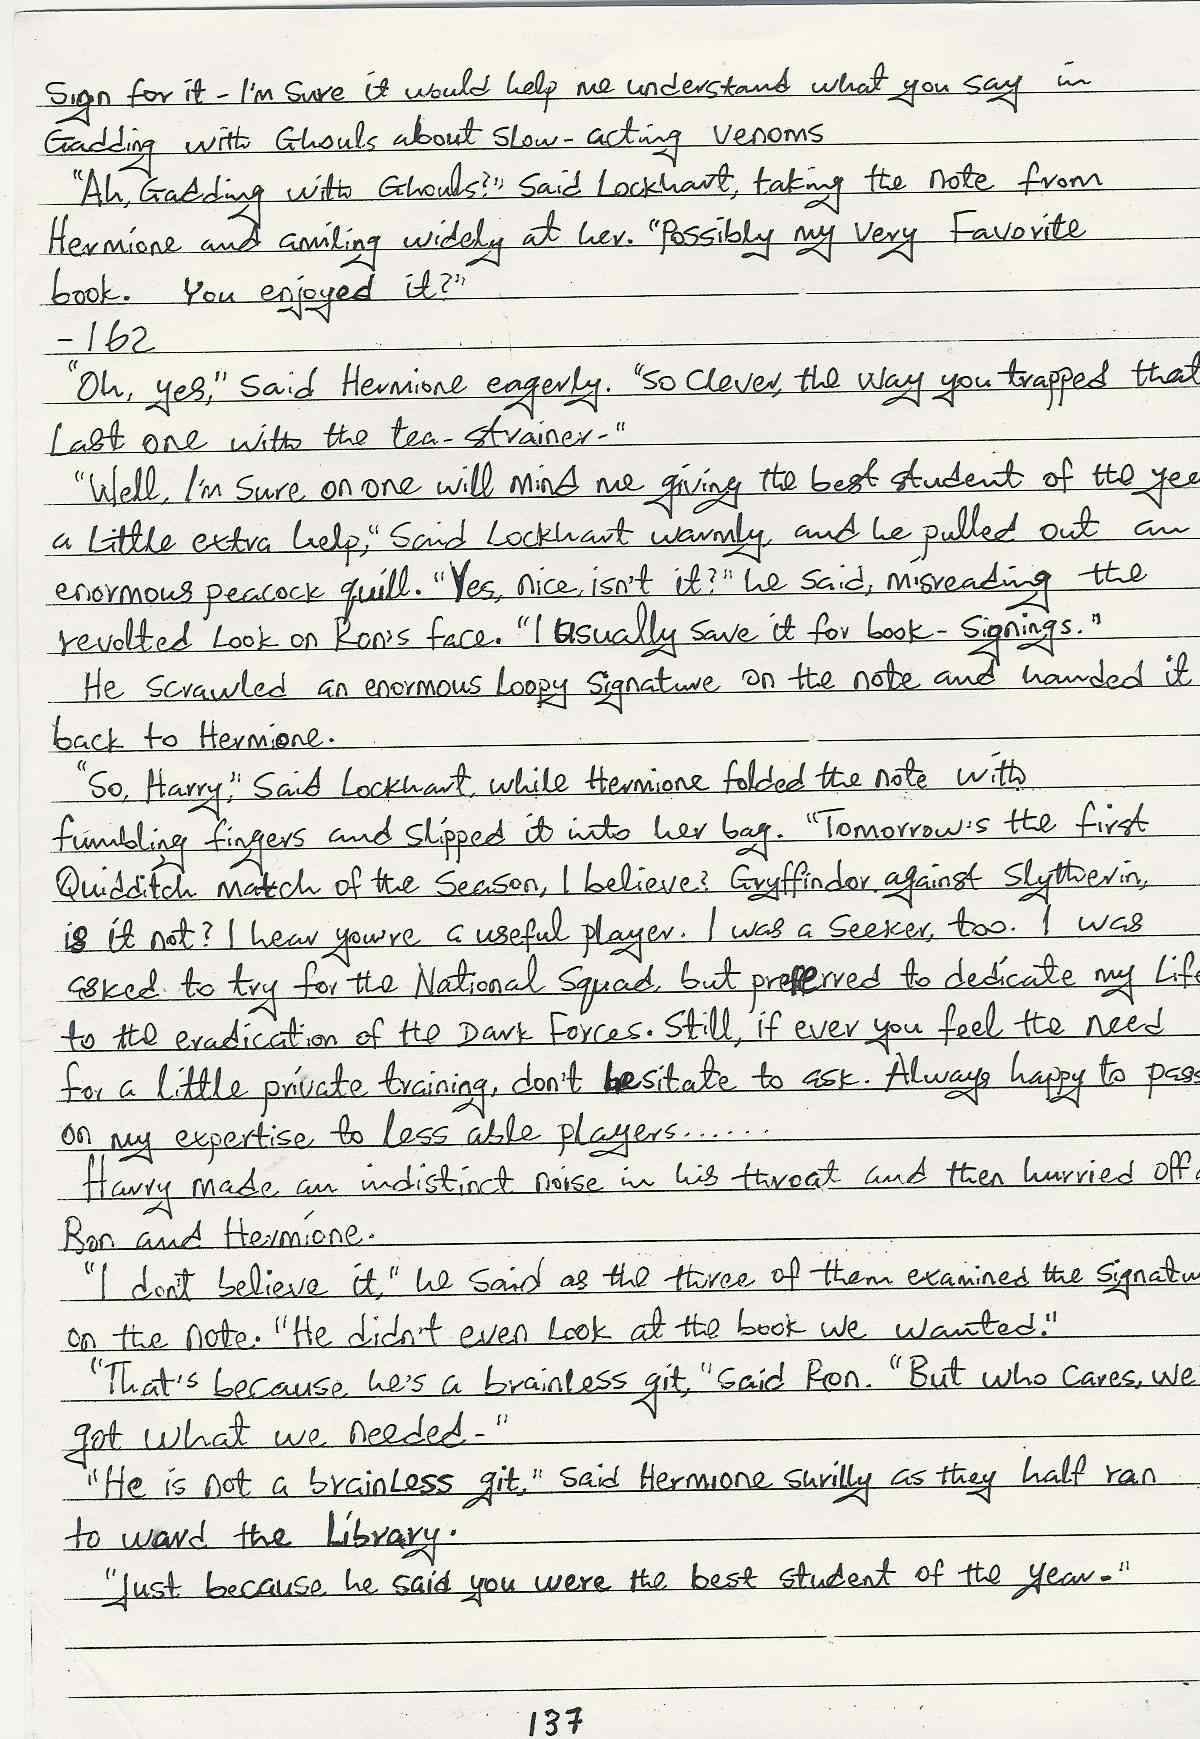 Sign for it - I'm Sure it would help me understand what you say in
Gadding with Ghouls about slow-acting venoms
"Ah, Gadding with Ghouls?" Said Lockhart, taking the note from
Hermione and amiling widely at her. "Possibly my very Favorite
book. You enjoyed it?"
-162
"Oh, yes," Said Hermione eagerly. "So Clever, the way you trapped that
Last one with the tea-strainer-"
"Well, I'm Sure on one will mind me giving the best student of the yea
a Little extra help," Said Lockhart warmly, and he pulled out an
enormous peacock quill. "Yes, nice, isn't it?" he said, misreading the
revolted Look on Ron's face. "I usually save it for book-Signings."
He scrawled an enormous Loopy Signature on the note and handed it
back to Hermione.
"So, Harry," Said Lockhart, while Hermione folded the note with
fumbling fingers and slipped it into her bag. "Tomorrow's the first
Quidditch match of the Season, I believe? Gryffindor against Slytherin,
is it not? I hear you're a useful player. I was a Seeker, too. I was
asked to try for the National Squad, but preferred to dedicate my Life
to the eradication of the Dark Forces. Still, if ever you feel the need
for a little private training, don't hesitate to ask. Always happy to pass
on my expertise to less able players......
Harry made an indistinct noise in his throat and then hurried off a
Ron and Hermione.
"I don't believe it," he said as the three of them examined the Signatu
on the note. "He didn't even Look at the book we wanted."
"That's because he's a brainless git," said Ron. "But who cares, we
got what we needed-"
"He is not a brainless git," said Hermione shrilly as they half ran
to ward the Library.
"Just because he said you were the best student of the year-"
137